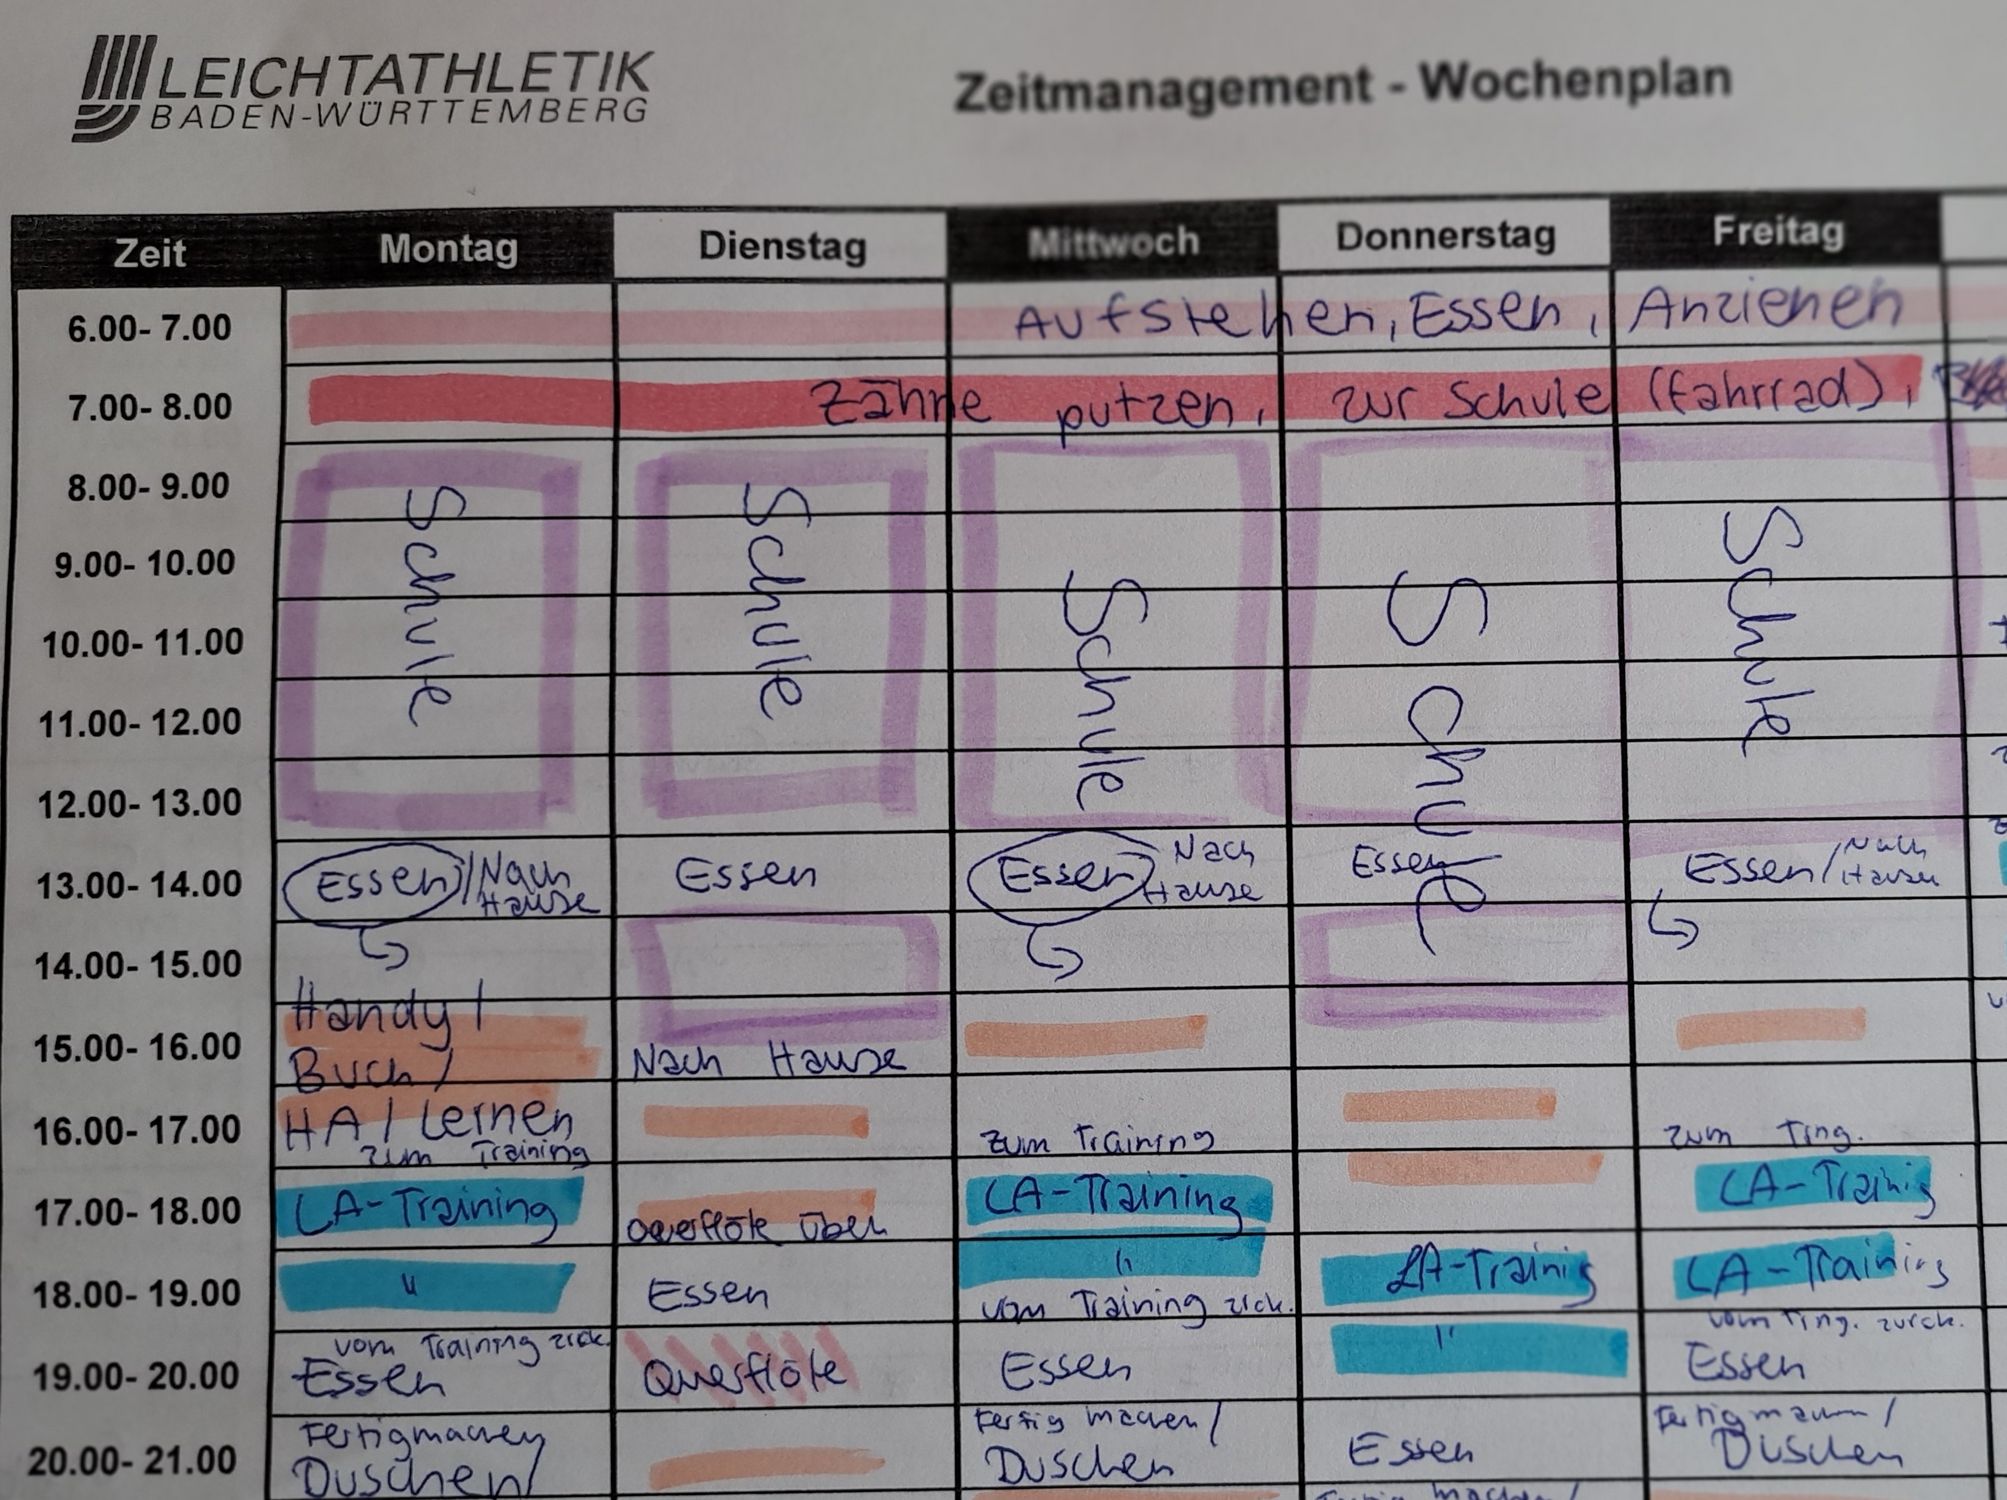 LEICHTATHLETIK
BADEN-WÜRTTEMBERG
Zeitmanagement - Wochenplan
Zeit Montag Dienstag Mittwoch Donnerstag Freitag
6.00- 7.00 Aufstehen, Essen, Anziehen
7.00- 8.00 Zähne putzen, zur Schule (Fahrrad),
8.00- 9.00
9.00- 10.00
10.00- 11.00
11.00- 12.00
12.00- 13.00
Schule Schule Schule Schule Schule
13.00- 14.00 Essen / Nach Hause Essen Essen Nach Hause Essen Essen / Nach Hause
14.00- 15.00
Handy /
15.00- 16.00 Buch / Nach Hause
16.00- 17.00 HA / Lernen
zum Training zum Training zum Tring.
17.00- 18.00 LA-Training Querflöte üben LA-Training LA-Trainig
18.00- 19.00 " Essen " LA-Trainig LA-Training
vom Training zrck.
vom Training zrck. " vom Tring. zurck.
19.00- 20.00 Essen Querflöte Essen Essen
Fertigmachen Fertig machen / Fertigmachen /
20.00- 21.00 Duschen / Duschen Essen Duschen
Fertig machen /